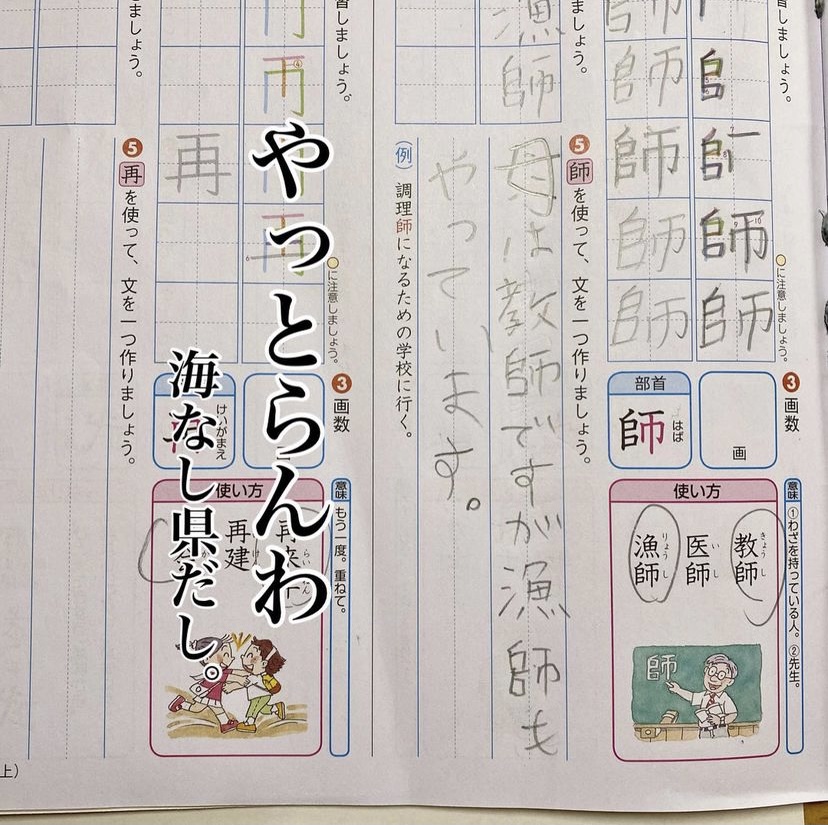 習しましょう。
師
師
師
師
師
○に注意しましょう。
❸画数
画
部首
師
はば
意味
①わざを持っている人。②先生。
使い方
教師
きょうし
医師
いし
漁師
りょうし
師
ましょう。
❺師を使って、文を一つ作りましょう。
漁師
母は教師ですが漁師も
やっています。
(例)調理師になるための学校に行く。
習しましょう。
再
○に注意しましょう。
❸画数
けいがまえ
意味
もう一度。重ねて。
使い方
再建
ましょう。
❺再を使って、文を一つ作りましょう。
やっとらんわ
海なし県だし。
上)